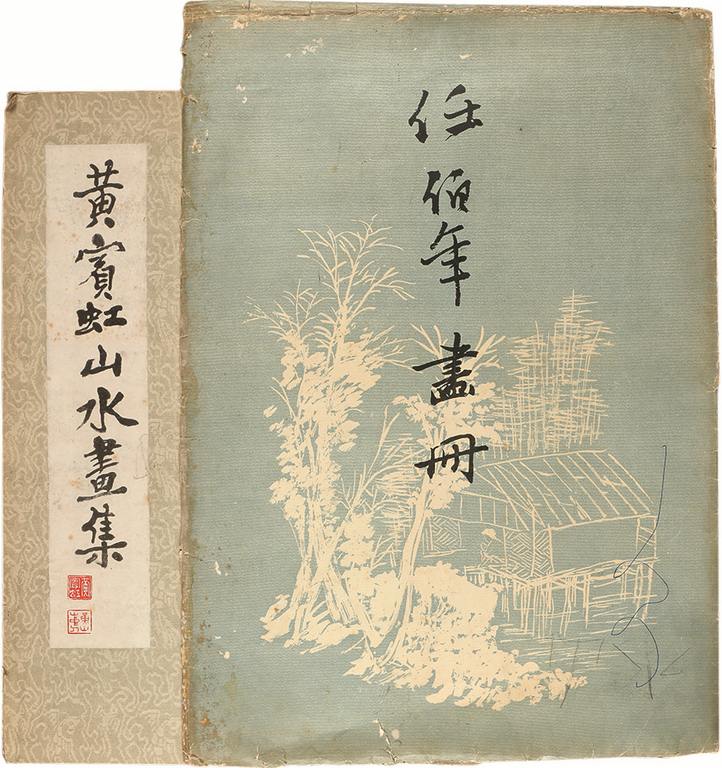 黃賓虹山水畫集
任伯年畫冊